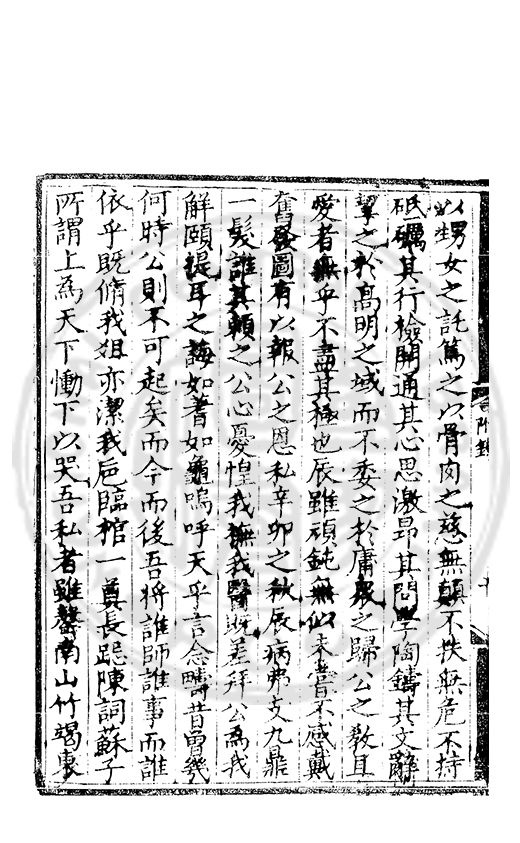 以甥女之託篤之以骨肉之慈無顛不扶無危不持
砥礪其行檢開通其心思激昂其問學陶鑄其文辭
挈之於高明之域而不委之於庸衆之歸公之教且
愛者無乎不盡其極也辰雖頑鈍無似未嘗不感戴
奮發圖有以報公之恩私辛卯之秋辰病弗支九鼎
一髮誰其賴之公心憂惶我撫我醫既差拜公為我
解頤提耳之誨如蓍如龜嗚呼天乎言念疇昔曾幾
何時公則不可起矣而今而後吾將誰師誰事而誰
依乎既脩我俎亦潔我巵臨棺一奠長跽陳詞蘇子
所謂上為天下慟下以哭吾私者雖罄南山竹竭東
附錄